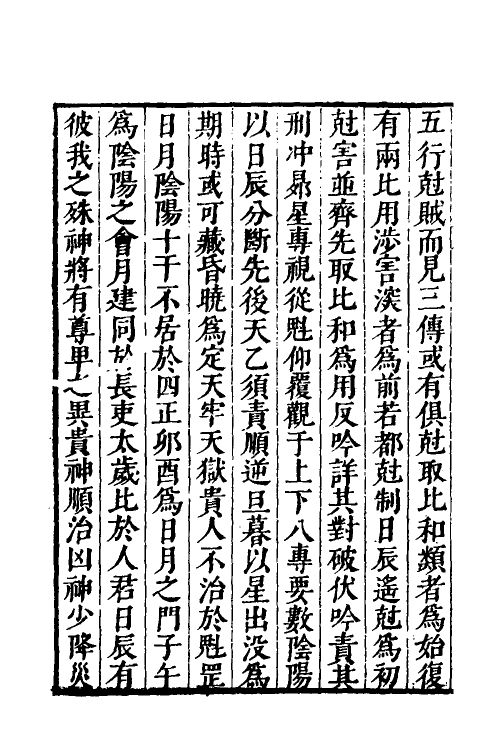 五行尅賊而見三傳或有俱尅取比和類者爲始復
有兩比用涉害深者爲前若都尅制日辰遙尅爲初
尅害並齊先取比和爲用反吟詳其對破伏吟責其
刑冲昴星專視從魁仰覆觀于上下八專要數陰陽
以日辰分斷先後天乙須責順逆旦暮以星出没爲
期時或可藏昏曉爲定天牢天獄貴人不治於魁罡
日月陰陽十干不居於四正卯酉爲日月之門子午
爲陰陽之會月建同於長吏太歲比於人君日辰有
彼我之殊神將有尊卑之異貴神順治凶神少降災